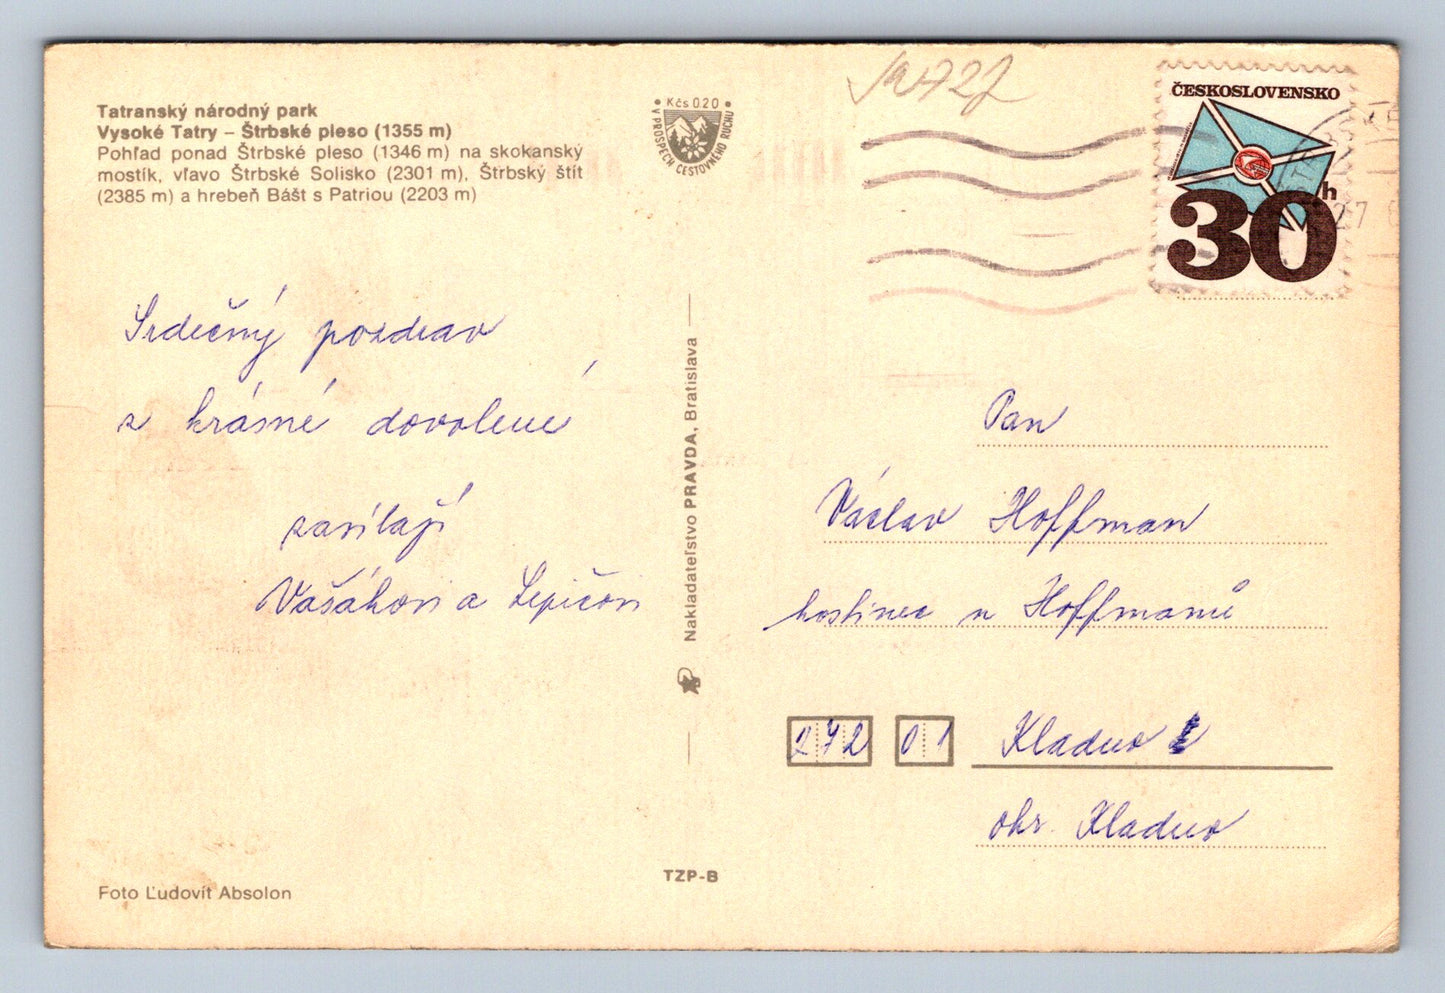 Tatranský národný park
Vysoké Tatry – Štrbské pleso (1355 m)
Pohľad ponad Štrbské pleso (1346 m) na skokanský
mostík, vľavo Štrbské Solisko (2301 m), Štrbský štít
(2385 m) a hrebeň Bášt s Patriou (2203 m)
• Kčs 0.20 •
V PROSPECH CESTOVNÉHO RUCHU
ČESKOSLOVENSKO
30h
27
Srdečný pozdrav
z krásné dovolené
zasílají
Vašákovi a Lepičovi
Nakladateľstvo PRAVDA, Bratislava
Pan
Václav Hoffman
hostinec u Hoffmanů
272 01 Kladno
okr. Kladno
TZP-B
Foto Ľudovít Absolon